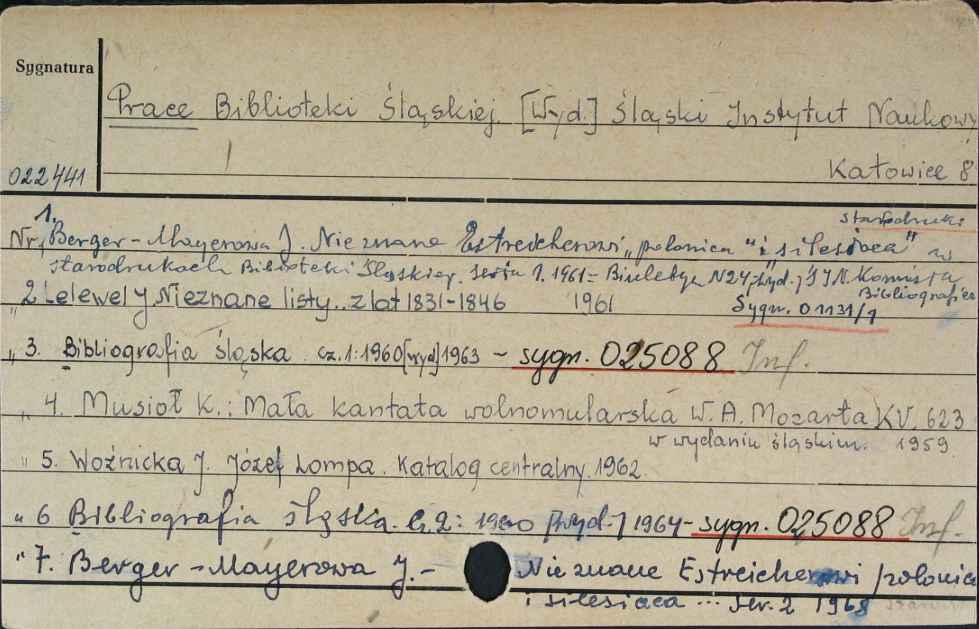 Sygnatura
Prace Biblioteki Śląskiej. [Wyd.] Śląski Instytut Naukowy
Katowice 8
022441
starodruki
Nr 1. Berger-Mayerowa J. Nieznane Estreicherowi "polonica" i silesiaca" w
starodrukach Biblioteki Śląskiej. Seria 1. 1961 = Biuletyn N24,
Bibliografia
" 2 Lelewel J Nieznane listy.. z lat 1831-1846 1961
Sygn. 01131/1
" 3. Bibliografia śląska. cz.1:1960[wyd]1963 - sygn. 025088 Inf.
" 4. Musioł K.: Mała kantata wolnomularska W. A. Mozarta KV. 623
w wydaniu śląskim. 1959.
" 5. Woźnicka J. Józef Lompa. Katalog centralny. 1962.
" 6 Bibliografia śląska. Cz. 2: 1960 [wyd.] 1964 - sygn. 025088 Inf.
" 7. Berger-Mayerowa J. - Nieznane Estreicherowi polonica
i silesiaca ... ser. 2 1968